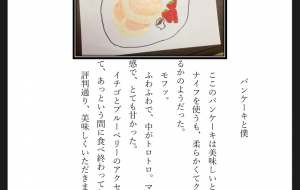 パンケーキと僕
ここのパンケーキは美味しいと
ナイフを使うも、柔らかくてク
るかのようだった。
モフッ。
ふわふわで、中がトロトロ。マ
感で、とても甘かった。
イチゴとブルーベリーのアクセ
て、あっという間に食べ終わって
評判通り、美味しくいただきま